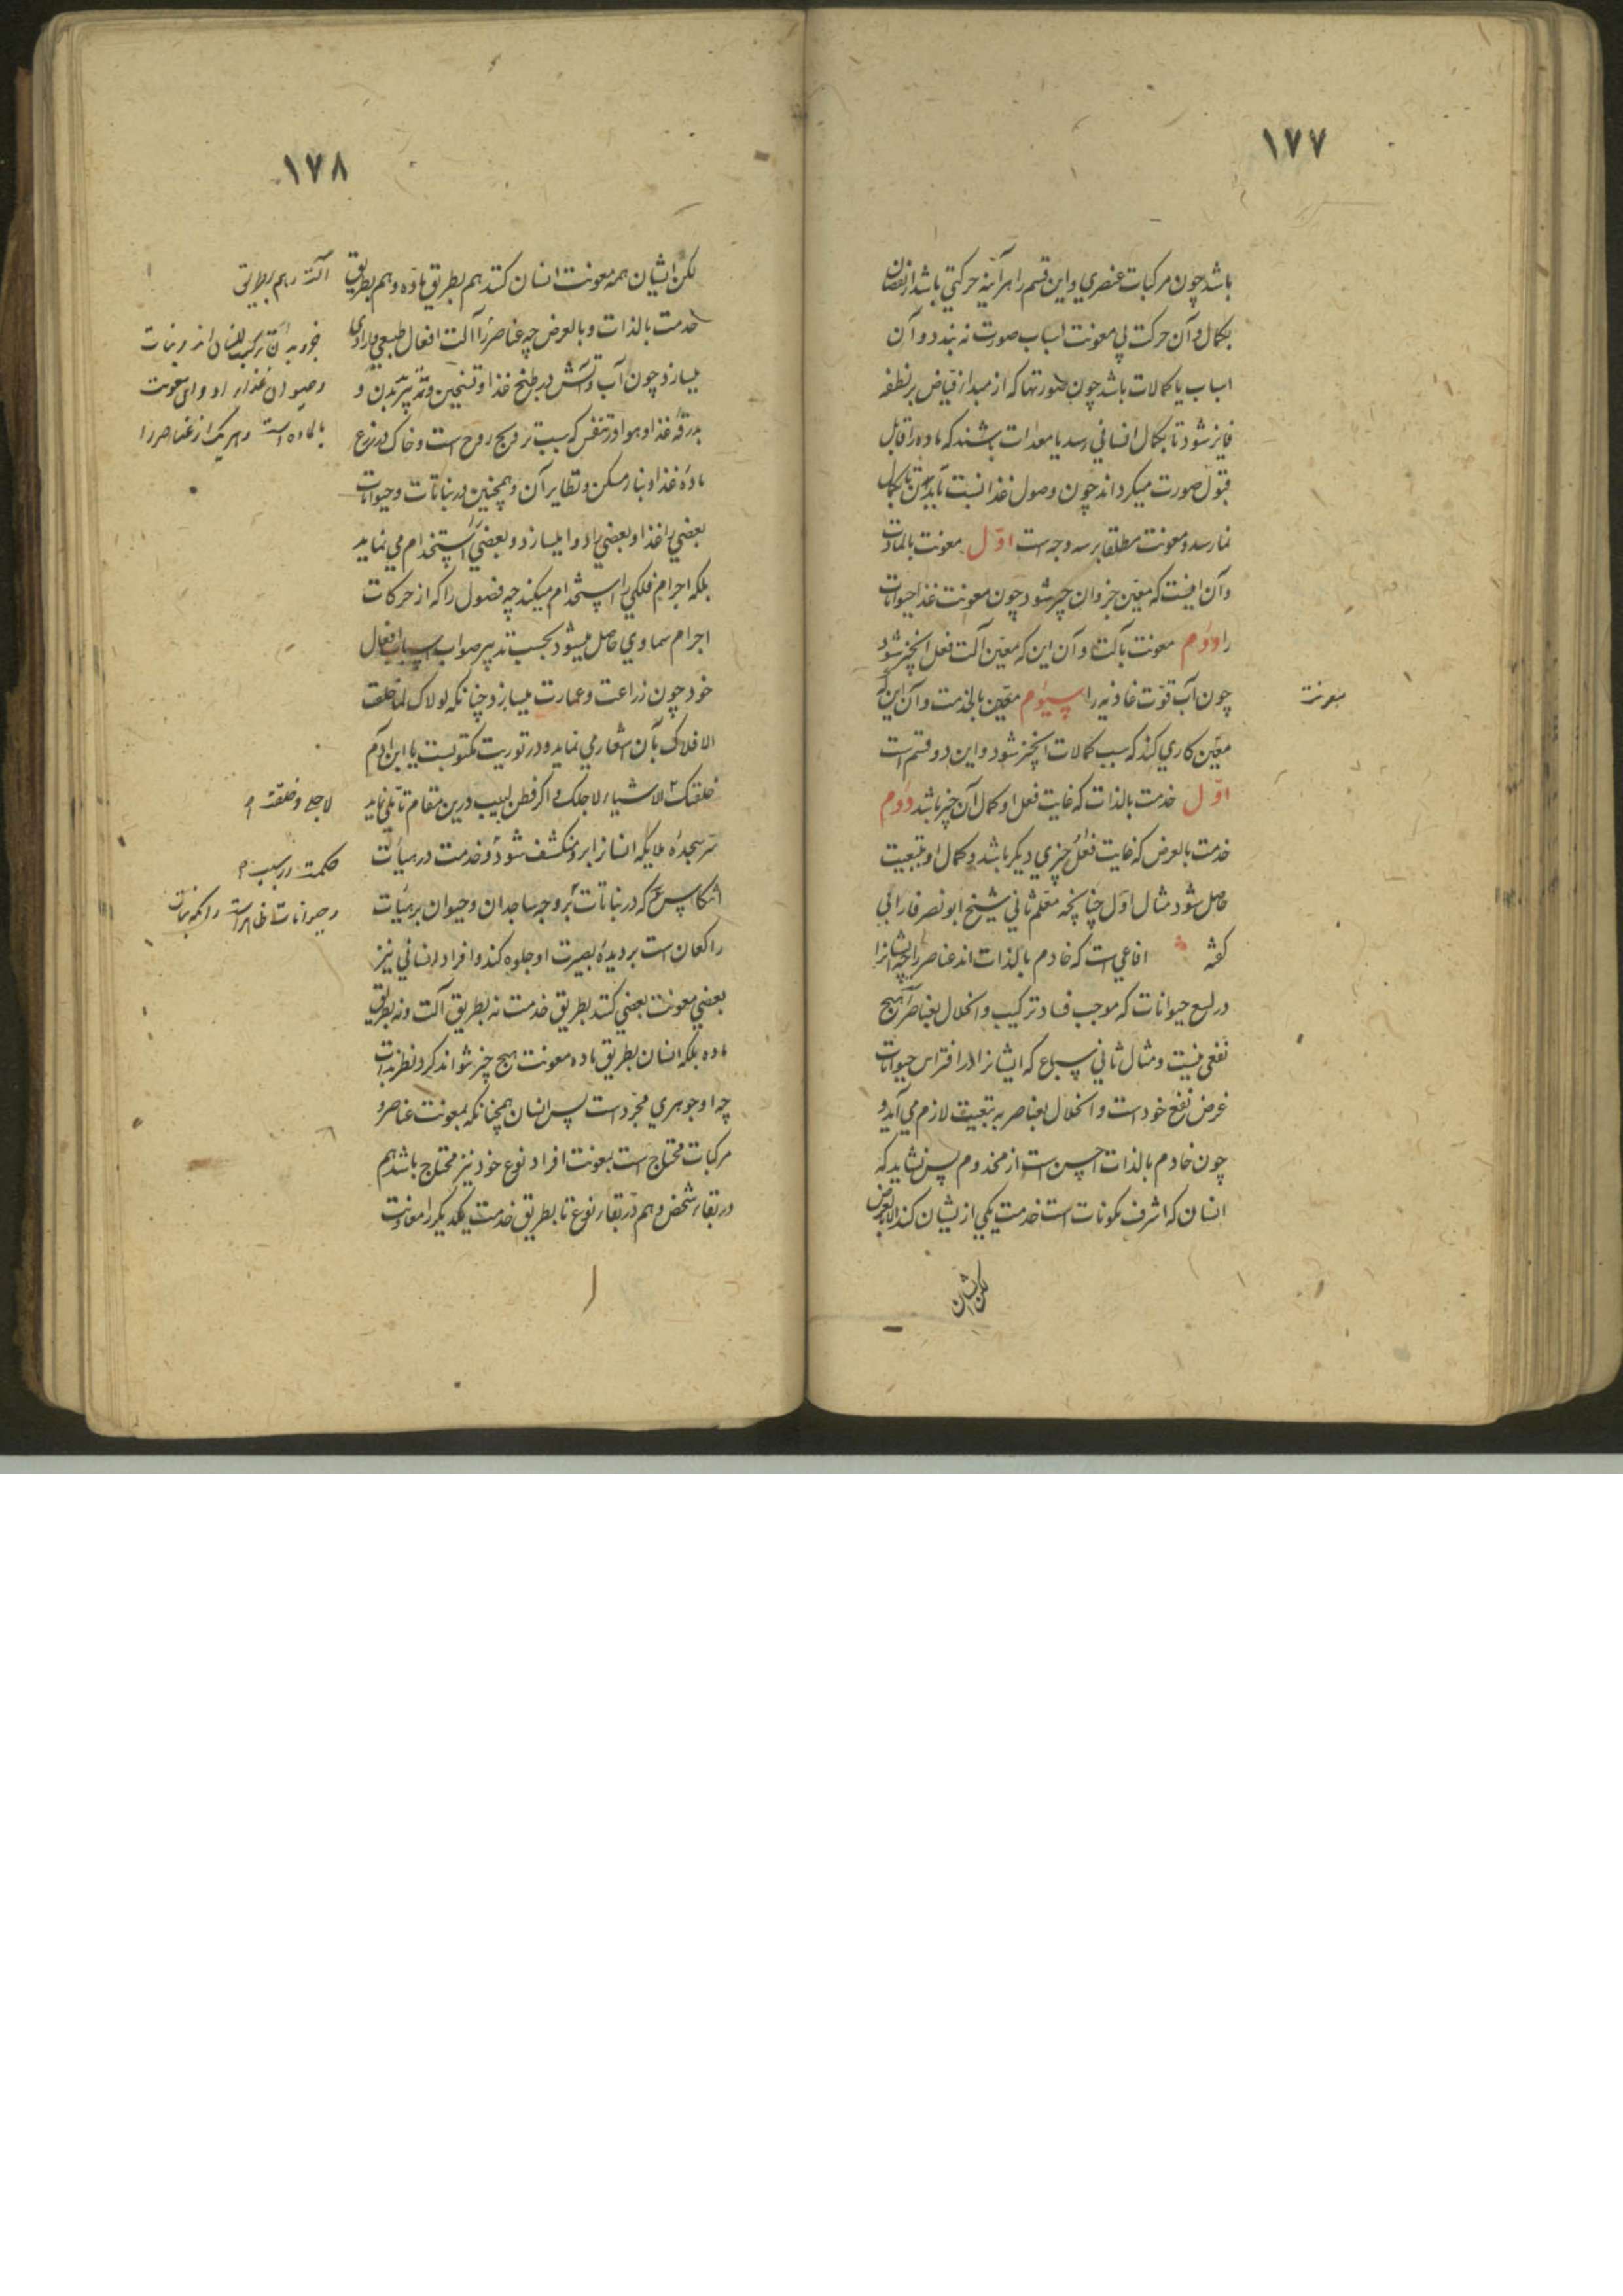 ۱۷۷
باشد چون مرکبات عنصري و این قسم را هرآینه حرکتي باشد از نقصان
بکمال و آن حرکت بي معونت اسباب صورت نه بندد و آن
اسباب یا کمالات باشد چون صورتها که از مبدا فیاض بر نطفه
فایز شود تا بکمال انساني رسد یا معدات باشند که ماده را قابل
قبول صورت میکرداند چون وصول غذا نسبت بابدان تا بکمال
نما رسد و معونت مطلقا بر سه وجه است اوّل معونت بالمادت
و آن اینست که معین جزو آن چیز شود چون معونت غذا حیوانات
را دوّم معونت بآلت و آن این که معین آلت فعل آنچیز شود
چون آب قوّت غاذیه را سیوم معین بالخدمت و آن این که
معونت
معین کاري کند که سبب کمالات آنچیز شود و این دو قسم است
اوّل خدمت بالذات که غایت فعل او کمال آن چیز باشد دوم
خدمت بالعرض که غایت فعل چیزي دیکر باشد و کمال او بتبعیت
حاصل شود مثال اوّل چنانچه معلم ثاني شیخ ابو نصر فارابي
کفته افاعي است که خادم بالذات اند عناصر را چه ایشانرا
در لسع حیوانات که موجب فساد ترکیب و انحلال بعناصر آهیچ
نفعي نیست و مثال ثاني سباع که ایشانرا در افتراس حیوانات
غرض نفع خود است و انحلال بعناصر به تبعیت لازم مي آید و
چون خادم بالذات اخسّ است از مخدوم پس نشاید که
انسان که اشرف مکونات است خدمت یکي ازیشان کند الا بالعرض
لکن ایشان
۱۷۸
لکن ایشان همه معونت انسان کنند هم بطریق ماده و هم بطریق
آلت و هم بطریق
خدمت بالذات و بالعرض چه عناصر را آلت افعال طبیعي و ارادي
میسازد چون آب و آتش در طبخ غذا و تسخین و تبرید بدن و
بدرقه غذا و هوا در تنفس که سبب ترویح روح است و خاک در زرع
ماده غذا و بناء مسکن و نظایر آن و همچنین در نباتات و حیوانات
بعضي را غذا و بعضي را دوا میسازد و بعضي را استخدام مي نماید
بلکه اجرام فلکي را استخدام میکند چه فصول را که از حرکات
اجرام سماوي حاصل میشود بحسب تدبیر صواب اسباب افعال
خود چون زراعت و عمارت میسازد و چنانکه لولاک لما خلقت
الافلاک بآن اشعار مي نماید و در توریت مکتوبست یا ابن آدم
خلقتک الاشیاء لاجلک و اکر فطن لبیب درین مقام تاملي نماید
سر سجدهٔ ملایکه انسانرا برو منکشف شود و خدمت در هیأت
انتکاس که در نباتات بر وجه ساجدان و حیوان بر هیأت
راکعان است بر دیدهٔ بصیرت او جلوه کند و افراد انساني نیز
بعضي معونت بعضي کنند بطریق خدمت نه بطریق آلت و نه بطریق
ماده بلکه انسان بطریق ماده معونت هیچ چیز نتواند کرد نظر بذات
چه او جوهري مجرّد است پس انسان همچنانکه بمعونت عناصر و
مرکبات محتاج است بمعونت افراد نوع خود نیز محتاج باشد هم
در بقاء شخص و هم در بقاء نوع تا بطریق خدمت یکدیکر را معاونت